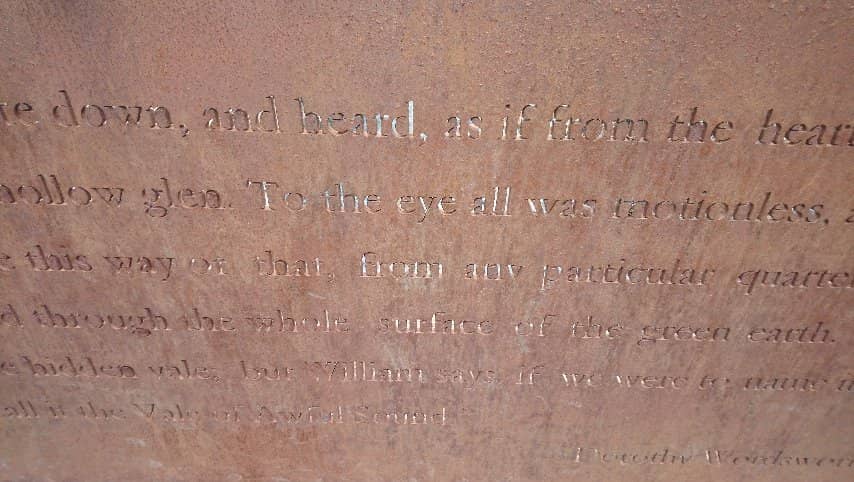 te down, and heard, as if from the heart
hollow glen. To the eye all was motionless,
e this way or that, from any particular quarter
d through the whole surface of the green earth.
e hidden vale; but William says, if we were to name it
all it the Vale of Awful Sound
Dorothy Wordswort